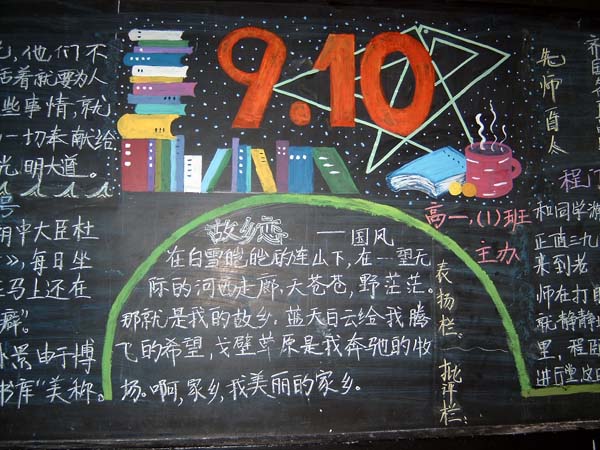 他们不
活着就要为人
些事情,就
一切奉献给
光明大道。
号
朝中大臣杜
》,每日坐
马上还在
癖。
外景由于博
书库"美称。
9.10
故乡恋
——国风
在白雪皑皑的连山下,在一望无
际的河西走廊.天苍苍,野茫茫。
那就是我的故乡.蓝天白云给我腾
飞的希望,戈壁草原是我奔驰的牧
场。啊,家乡,我美丽的家乡。
高一.(1)班
主办
表扬栏:
批评栏:
先师
程门
和同学游
正值三九
来到老
师在打
就静静
里,程